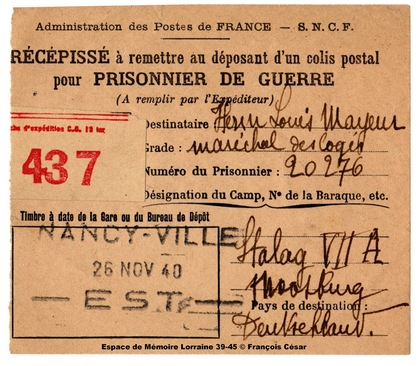 Administration des Postes de FRANCE - S. N. C. F.
RÉCÉPISSÉ à remettre au déposant d'un colis postal
pour PRISONNIER DE GUERRE
(A remplir par l'Expéditeur)
che d'expédition C.S. 12 ter
437
Destinataire Herrn Louis Mayeur
Grade : maréchal des logis
Numéro du Prisonnier : 20276
Désignation du Camp, N° de la Baraque, etc.
Timbre à date de la Gare ou du Bureau de Dépôt
NANCY-VILLE
26 NOV 40
EST
Stalag VII A
Moosburg
Pays de destination :
Deutschland.
Espace de Mémoire Lorraine 39-45 © François César